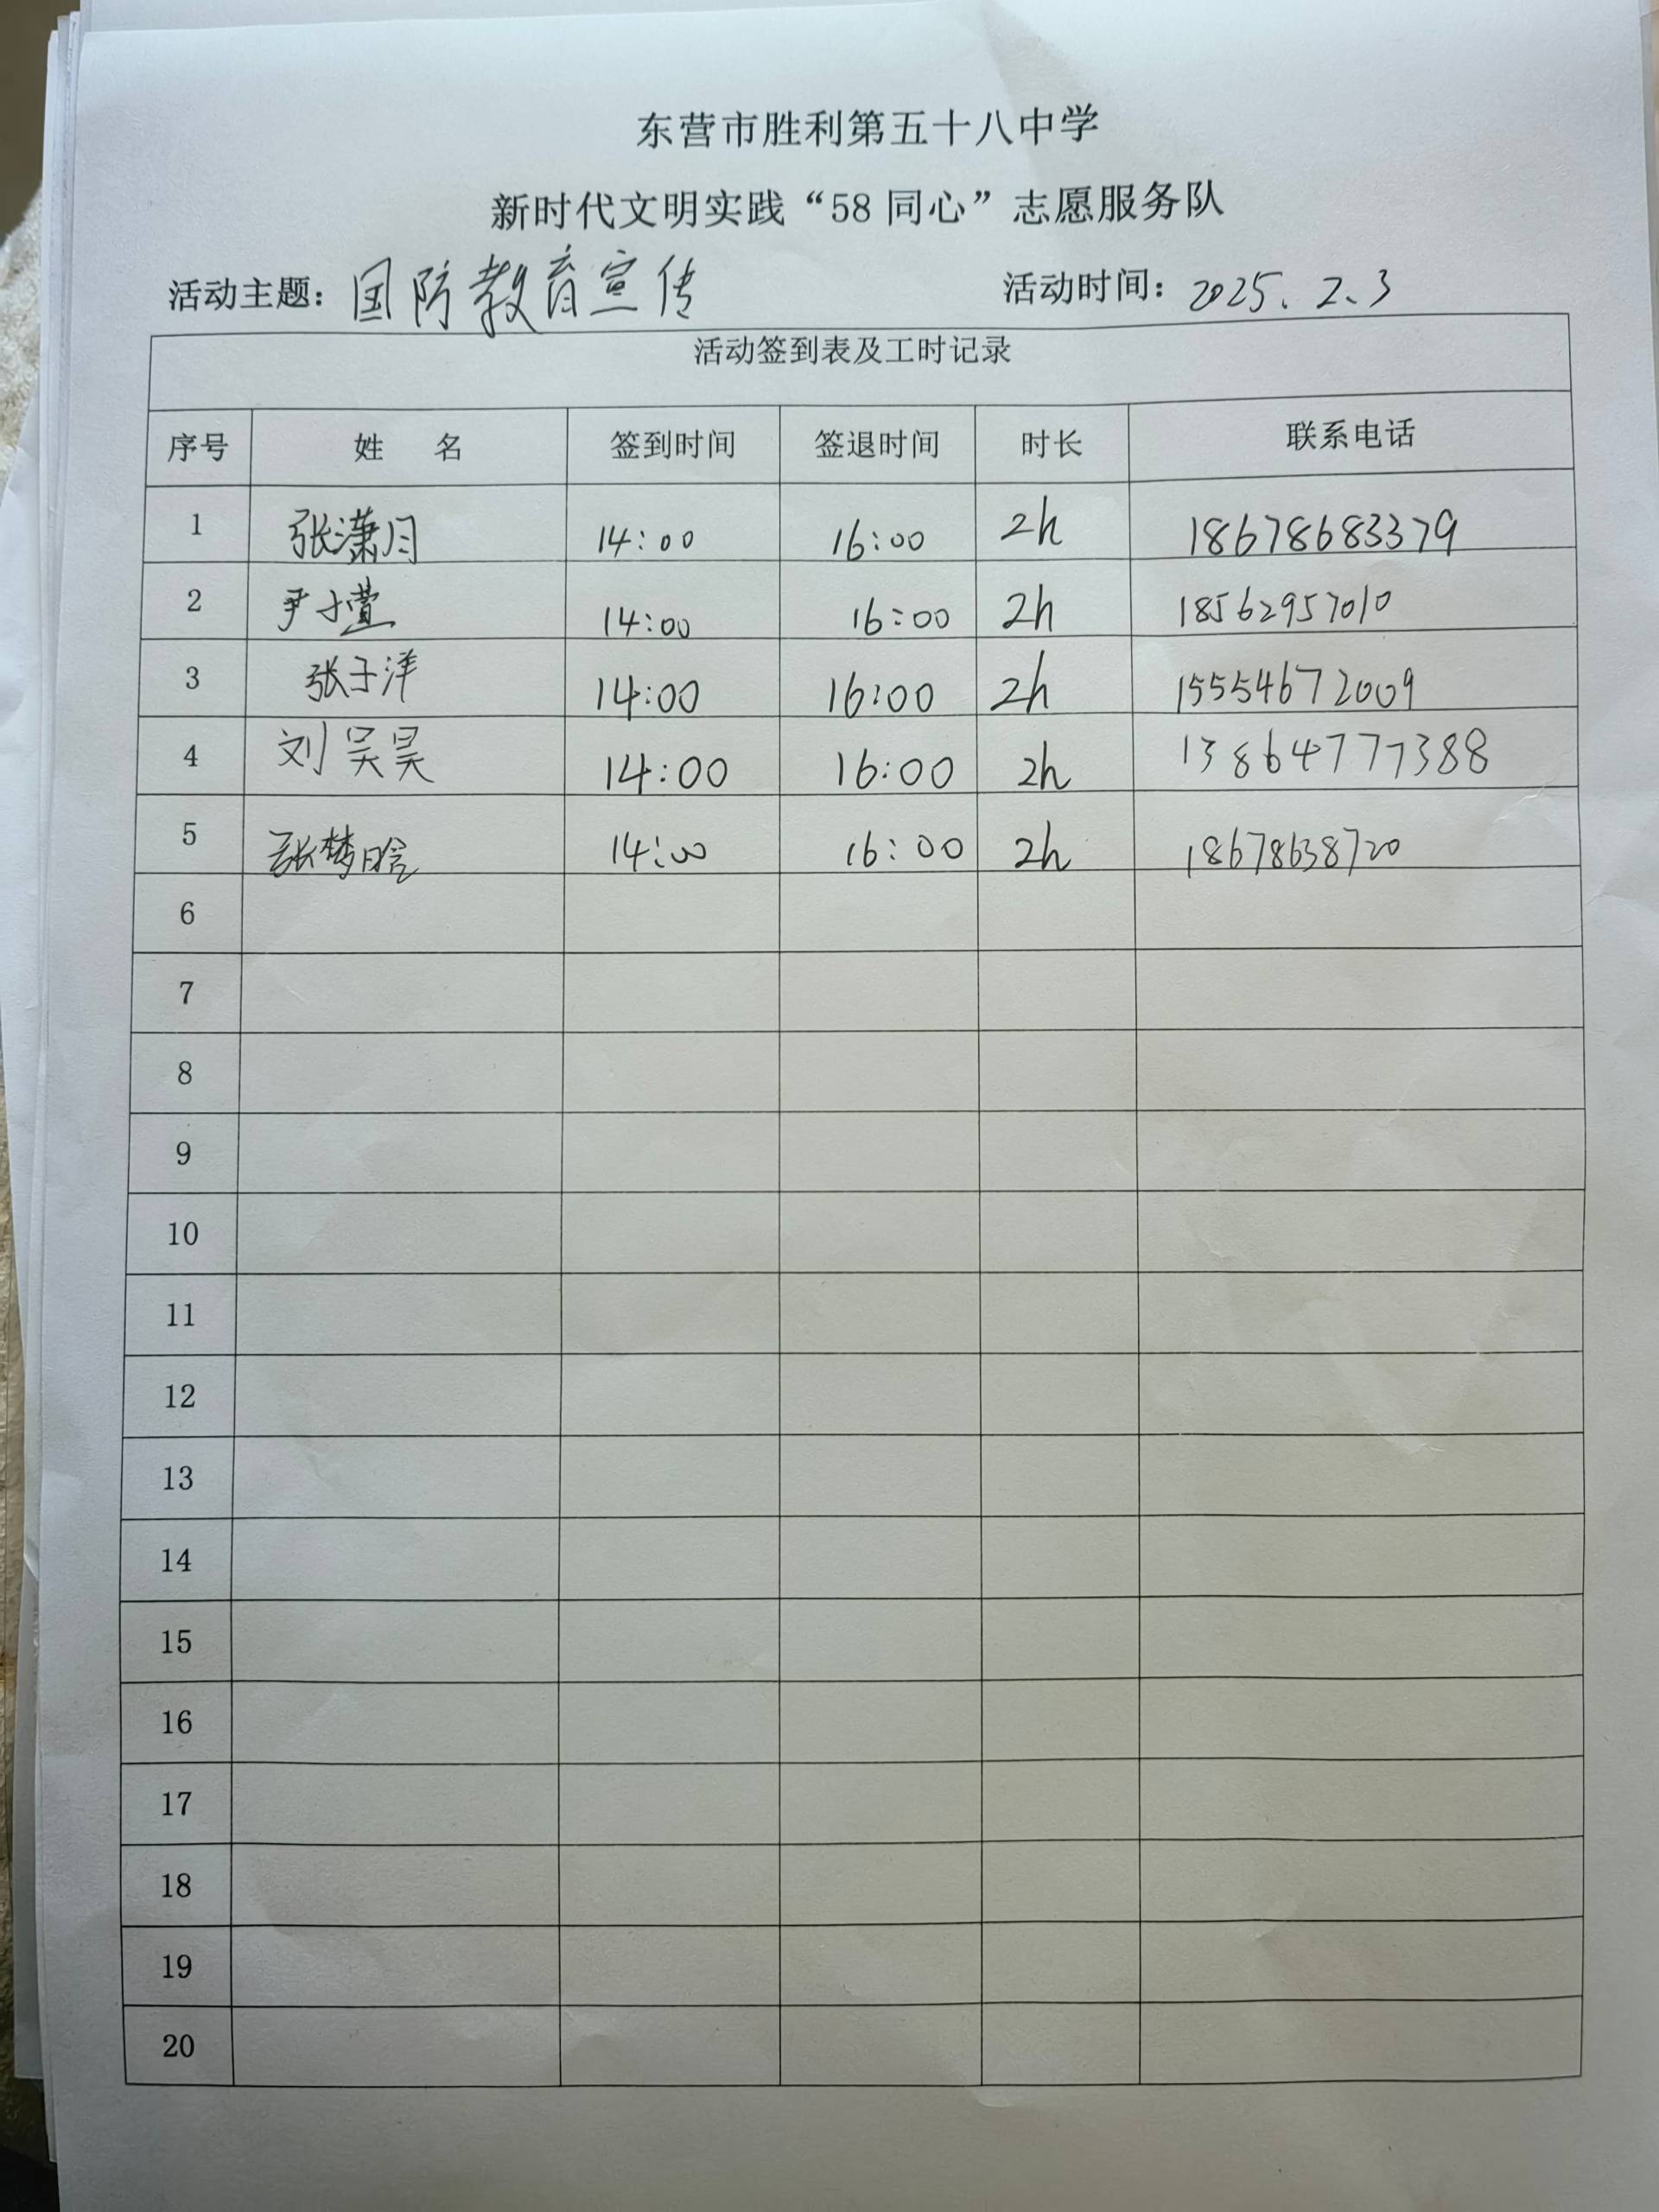 东营市胜利第五十八中学
新时代文明实践“58 同心”志愿服务队
活动主题：国防教育宣传 活动时间：2025.2.3
活动签到表及工时记录
序号 姓 名 签到时间 签退时间 时长 联系电话
1 张潇月 14:00 16:00 2h 18678683379
2 尹子萱 14:00 16:00 2h 18562957010
3 张子洋 14:00 16:00 2h 15554672009
4 刘昊昊 14:00 16:00 2h 13864777388
5 张梦晗 14:00 16:00 2h 18678638720
6
7
8
9
10
11
12
13
14
15
16
17
18
19
20